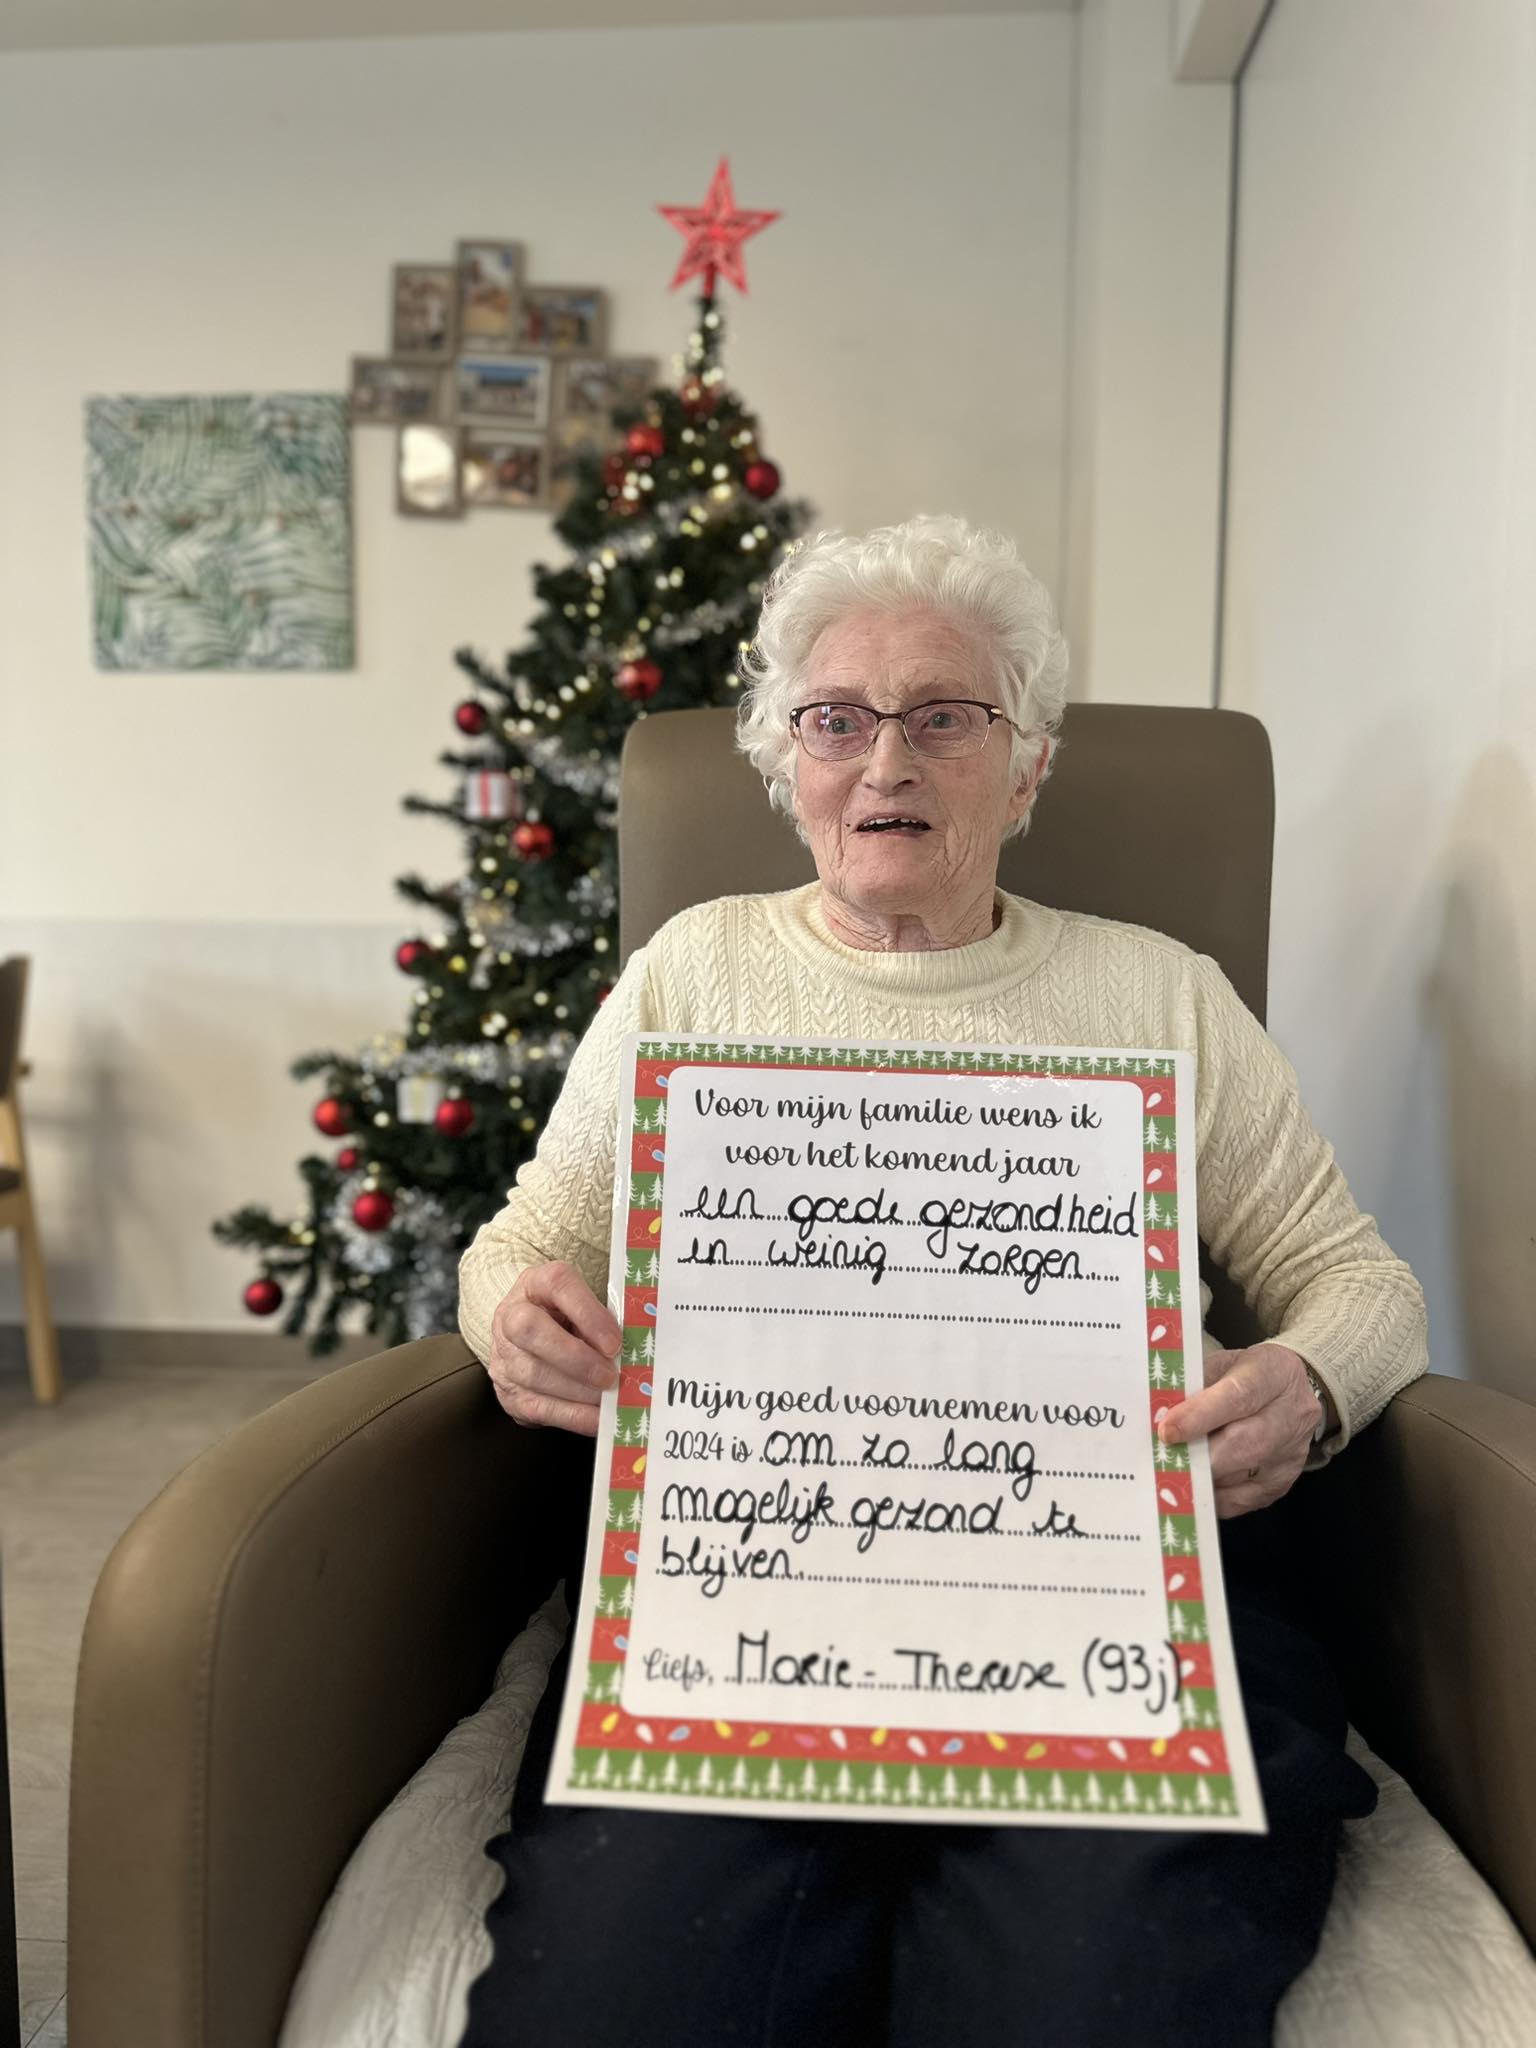 Voor mijn familie wens ik
voor het komend jaar
een goede gezondheid
en weinig zorgen.
Mijn goed voornemen voor
2024 is om zo lang
mogelijk gezond te
blijven.
Liefs, Marie-Therese (93j)